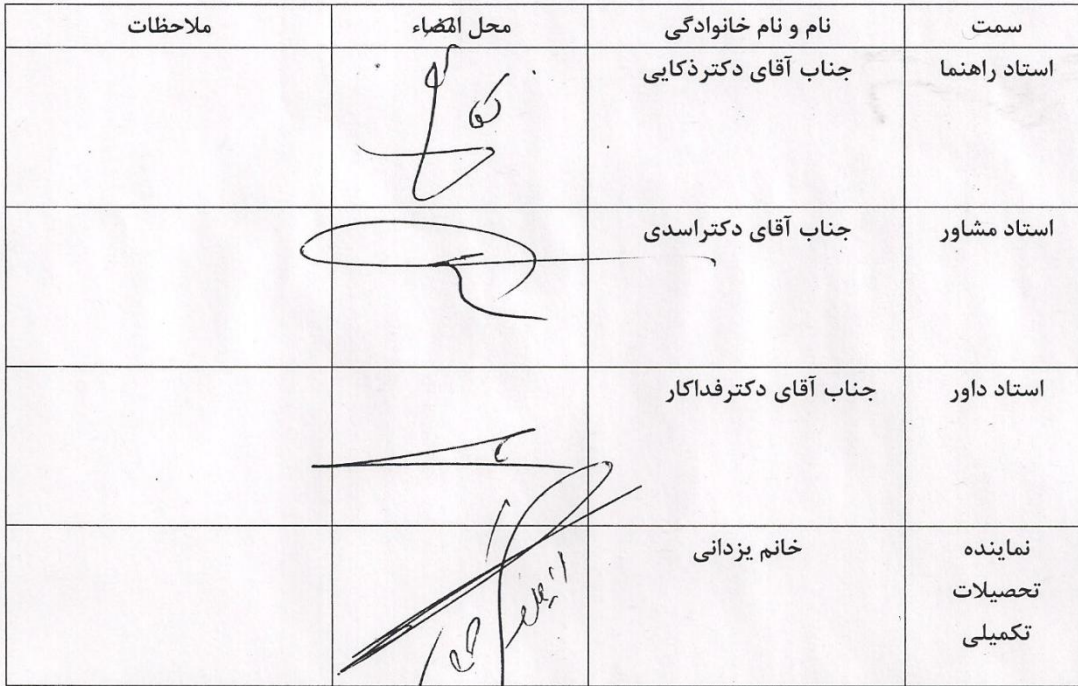 سمت نام و نام خانوادگی محل امضاء ملاحظات
استاد راهنما جناب آقای دکترذکایی
استاد مشاور جناب آقای دکتراسدی
استاد داور جناب آقای دکترفداکار
نماینده خانم یزدانی
تحصیلات
تکمیلی